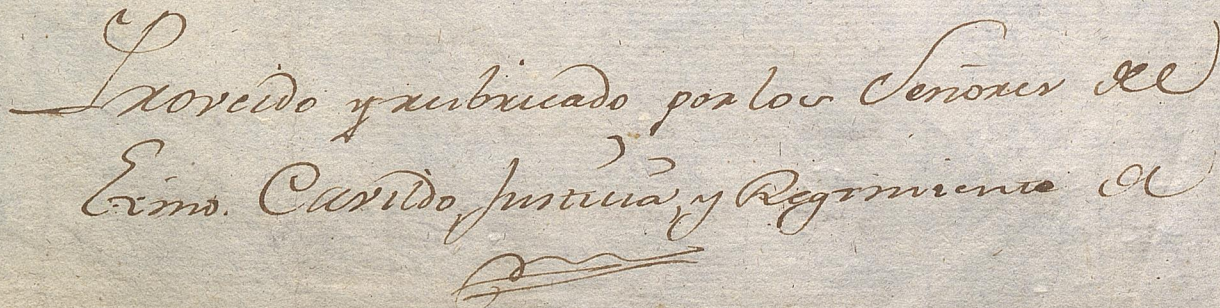 Proveido y rubricado por los Señores del
Exmo. Cavildo, Justicia, y Regimiento de